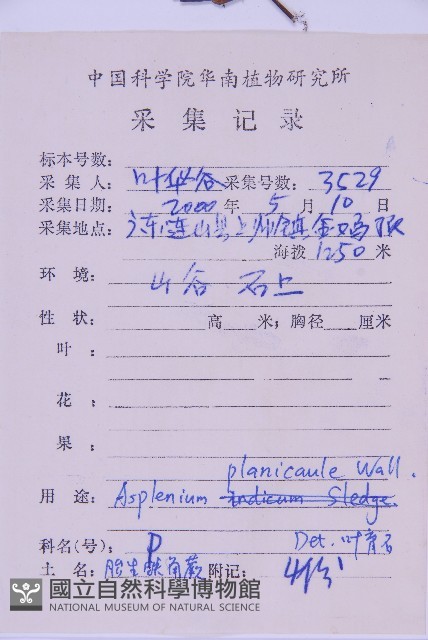 中国科学院华南植物研究所
采集记录
标本号数:
采集人: 叶华谷 采集号数: 3529
采集日期: 2000 年 5 月 10 日
采集地点: 连山县上帅镇金鸡
海拨 1250 米
环境: 山谷 石上
性状: 高 米; 胸径 厘米
叶:
花:
果:
planicaule Wall.
用途: Asplenium indicum Sledge.
科名(号): P Det. 叶育石
土名: 胎生铁角蕨 附记:
國立自然科學博物館
NATIONAL MUSEUM OF NATURAL SCIENCE